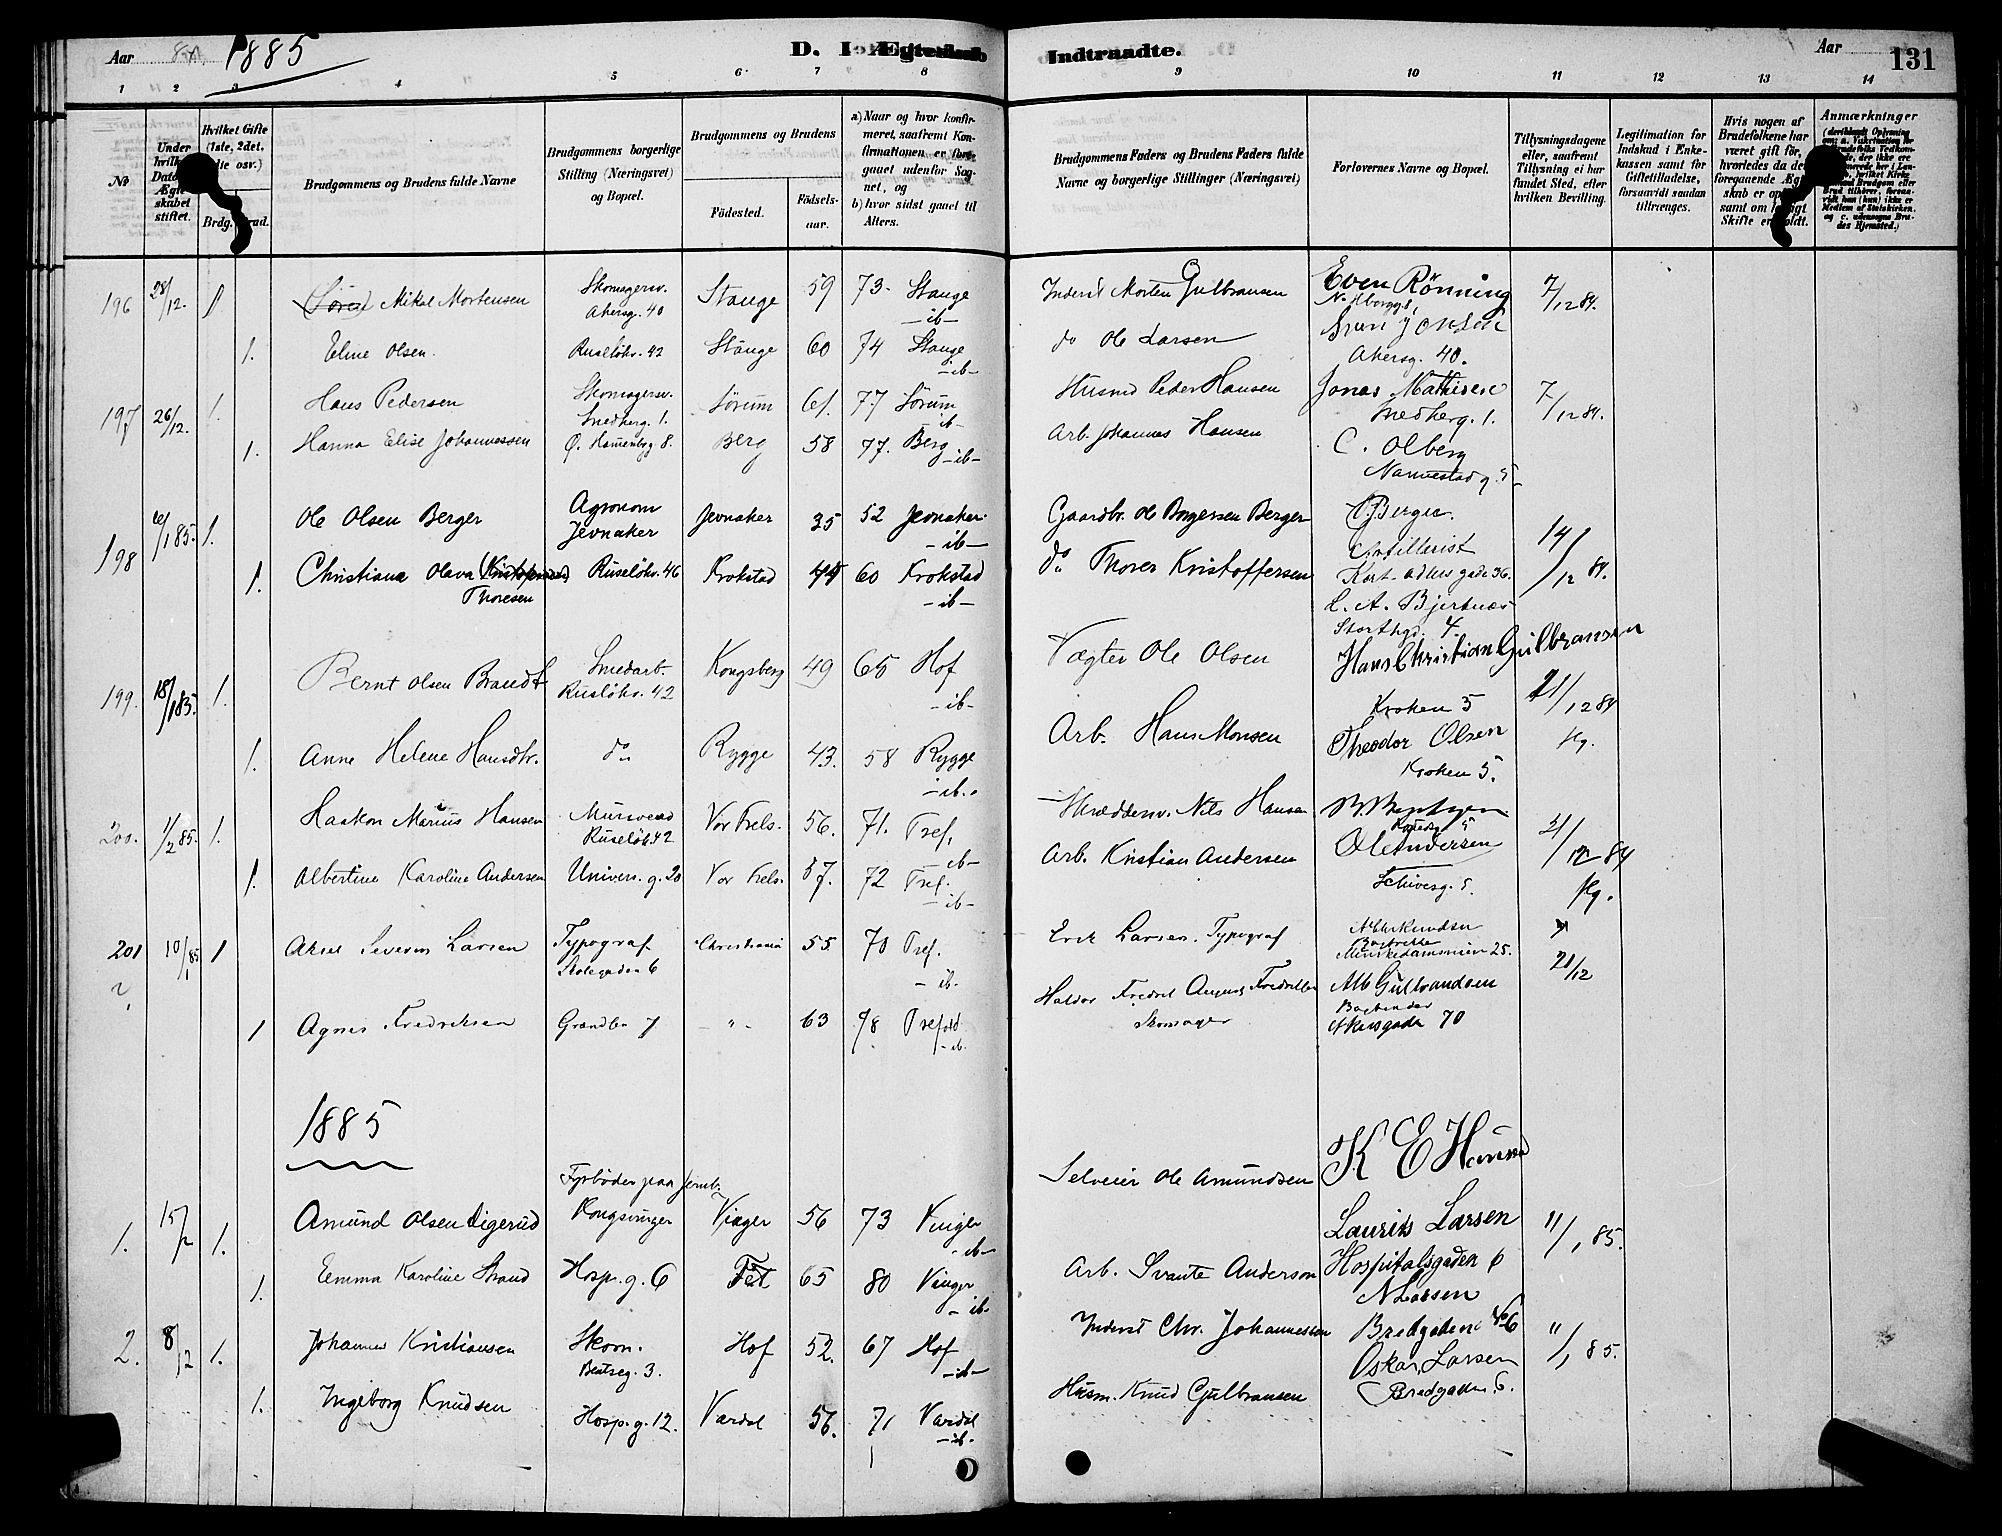 Aar 1885
D. I Ægteskab Indtraadte.
Aar 131
1 2 3 4 5 6 7 8 9 10 11 12 13 14
No
Under hvilken Dato Ægteskabet stiftet.
Hvilket Gifte (1ste, 2det, 3die osv.)
Brdg. Brud.
Brudgommens og Brudens fulde Navne
Brudgommens borgerlige Stilling (Næringsvei) og Bopæl.
Brudgommens og Brudens
Födested.
Födselsaar.
a) Naar og hvor konfirmeret, saafremt Konfirmationen er foregaaet udenfor Sognet, og
b) hvor sidst gaaet til Alters.
Brudgommens Faders og Brudens Faders fulde Navne og borgerlige Stillinger (Næringsvei)
Forlovernes Navne og Bopæl.
Tillysningsdagene eller, saafremt Tillysning ei har fundet Sted, efter hvilken Bevilling.
Legitimation for Indskud i Enkekassen samt for Giftetilladelse, forsaavidt saadan tiltrænges.
Hvis nogen af Brudefolkene har været gift för, hvorledes da det foregaaende Ægteskab er
samt om lovligt Skifte er holdt.
Anmærkninger
196 28/12. 1 Sören Mikal Mortensen Skomagersv. Akersg. 40 Stange 59 73. Stange -ib- Inderst Morten Gulbransen Even Rönning 7/12 84.
1. Eline Olsen. Ruselökv. 42 Stange 60 74 Stange -ib- do Ole Larsen Akersg. 40.
197 26/12. 1. Hans Pedersen Skomagersv. Smedberg. 1. Sörum 61. 77 Sörum ib- Husmd Peder Hansen Jonas Mathisen Smedberg. 1. 7/12 84.
1. Hanna Elise Johannessen Ö. Hammersbg 8. Berg 58 77. Berg -ib- Arb. Johannes Hansen C. Olberg Nannestad g. 5
198 6/1 85. 1. Ole Olsen Berger Agronom Jevnaker Jevnaker 35 52 Jevnaker. -ib- Gaardbr. Ole Borgersen Berger O Berger. Artillerist Kort Adlers gade 36. 14/12 84.
1. Christiane Olava Thoresen Ruselökv. 46 Krokstad 44 60 Krokstad -ib- do Thorer Kristoffersen L. A. Bjertnæs Storthgd. 4.
199. 18/1 85. 1. Bernt Olsen Brandt Smedarb. Ruslökv. 42 Kongsberg 49 65 Hof -ib- Vægter Ole Olsen Hans Christian Gulbransen Kroken 5 21/12 84
1. Anne Helene Hansdtr. do Rygge 43. 58 Rygge -ib.- Arb. Hans Monsen Theodor Olsen Kroken 5. Kg.
200. 1/2 85. 1. Haakon Marius Hansen Mursvend Ruselök. 42 Vor Frels. 56. 71. Tref, -ib- Skræddersv. Nils Hansen 21/12 84
1. Albertine Karoline Andersen Univers. g. 20 Vor Frels. 57. 72 Tref. -ib- Arb. Kristian Andersen Ole Andersen Schivesg. 5. Kg.
201 10/1 85 1 Aksel Severin Larsen Typograf Skolegaden 6 Christiania 55 70 Tref. -ib. Erik Larsen. Typograf Munkedamsveien 25. 21/12
1 Agnes Fredriksen Grændsen 7 - " - 63 78 Trefold. -ib. Haldor Fredrik August Fredriksen Skomager Alb Gulbrandsen Akersgaden 70
1885
1. 15/2 1. Amund Olsen Digerud Fyrböder paa Jernb. Kongsvinger Vinger 56 73 Vinger -ib- Selveier Ole Amundsen K E Hansen Laurits Larsen Hospitalsgaden 6 11/1 85.
1. Emma Karoline Strand Hosp. g. 6 Fet 65 80 Vinger -ib- Arb. Svante Anderson N Larsen Bredgaden No 6
2. 8/12 1. Johannes Kristiansen Skom. Bentseg. 3. Hof 52. 67 Hof -ib- Inderst Chr. Johannessen Oskar Larsen Bredgaden 6. 11/1 85.
1. Ingeborg Knudsen Hosp. g. 12. Vardal 56. 71 Vardal -ib- Husm. Knud Gulbransen